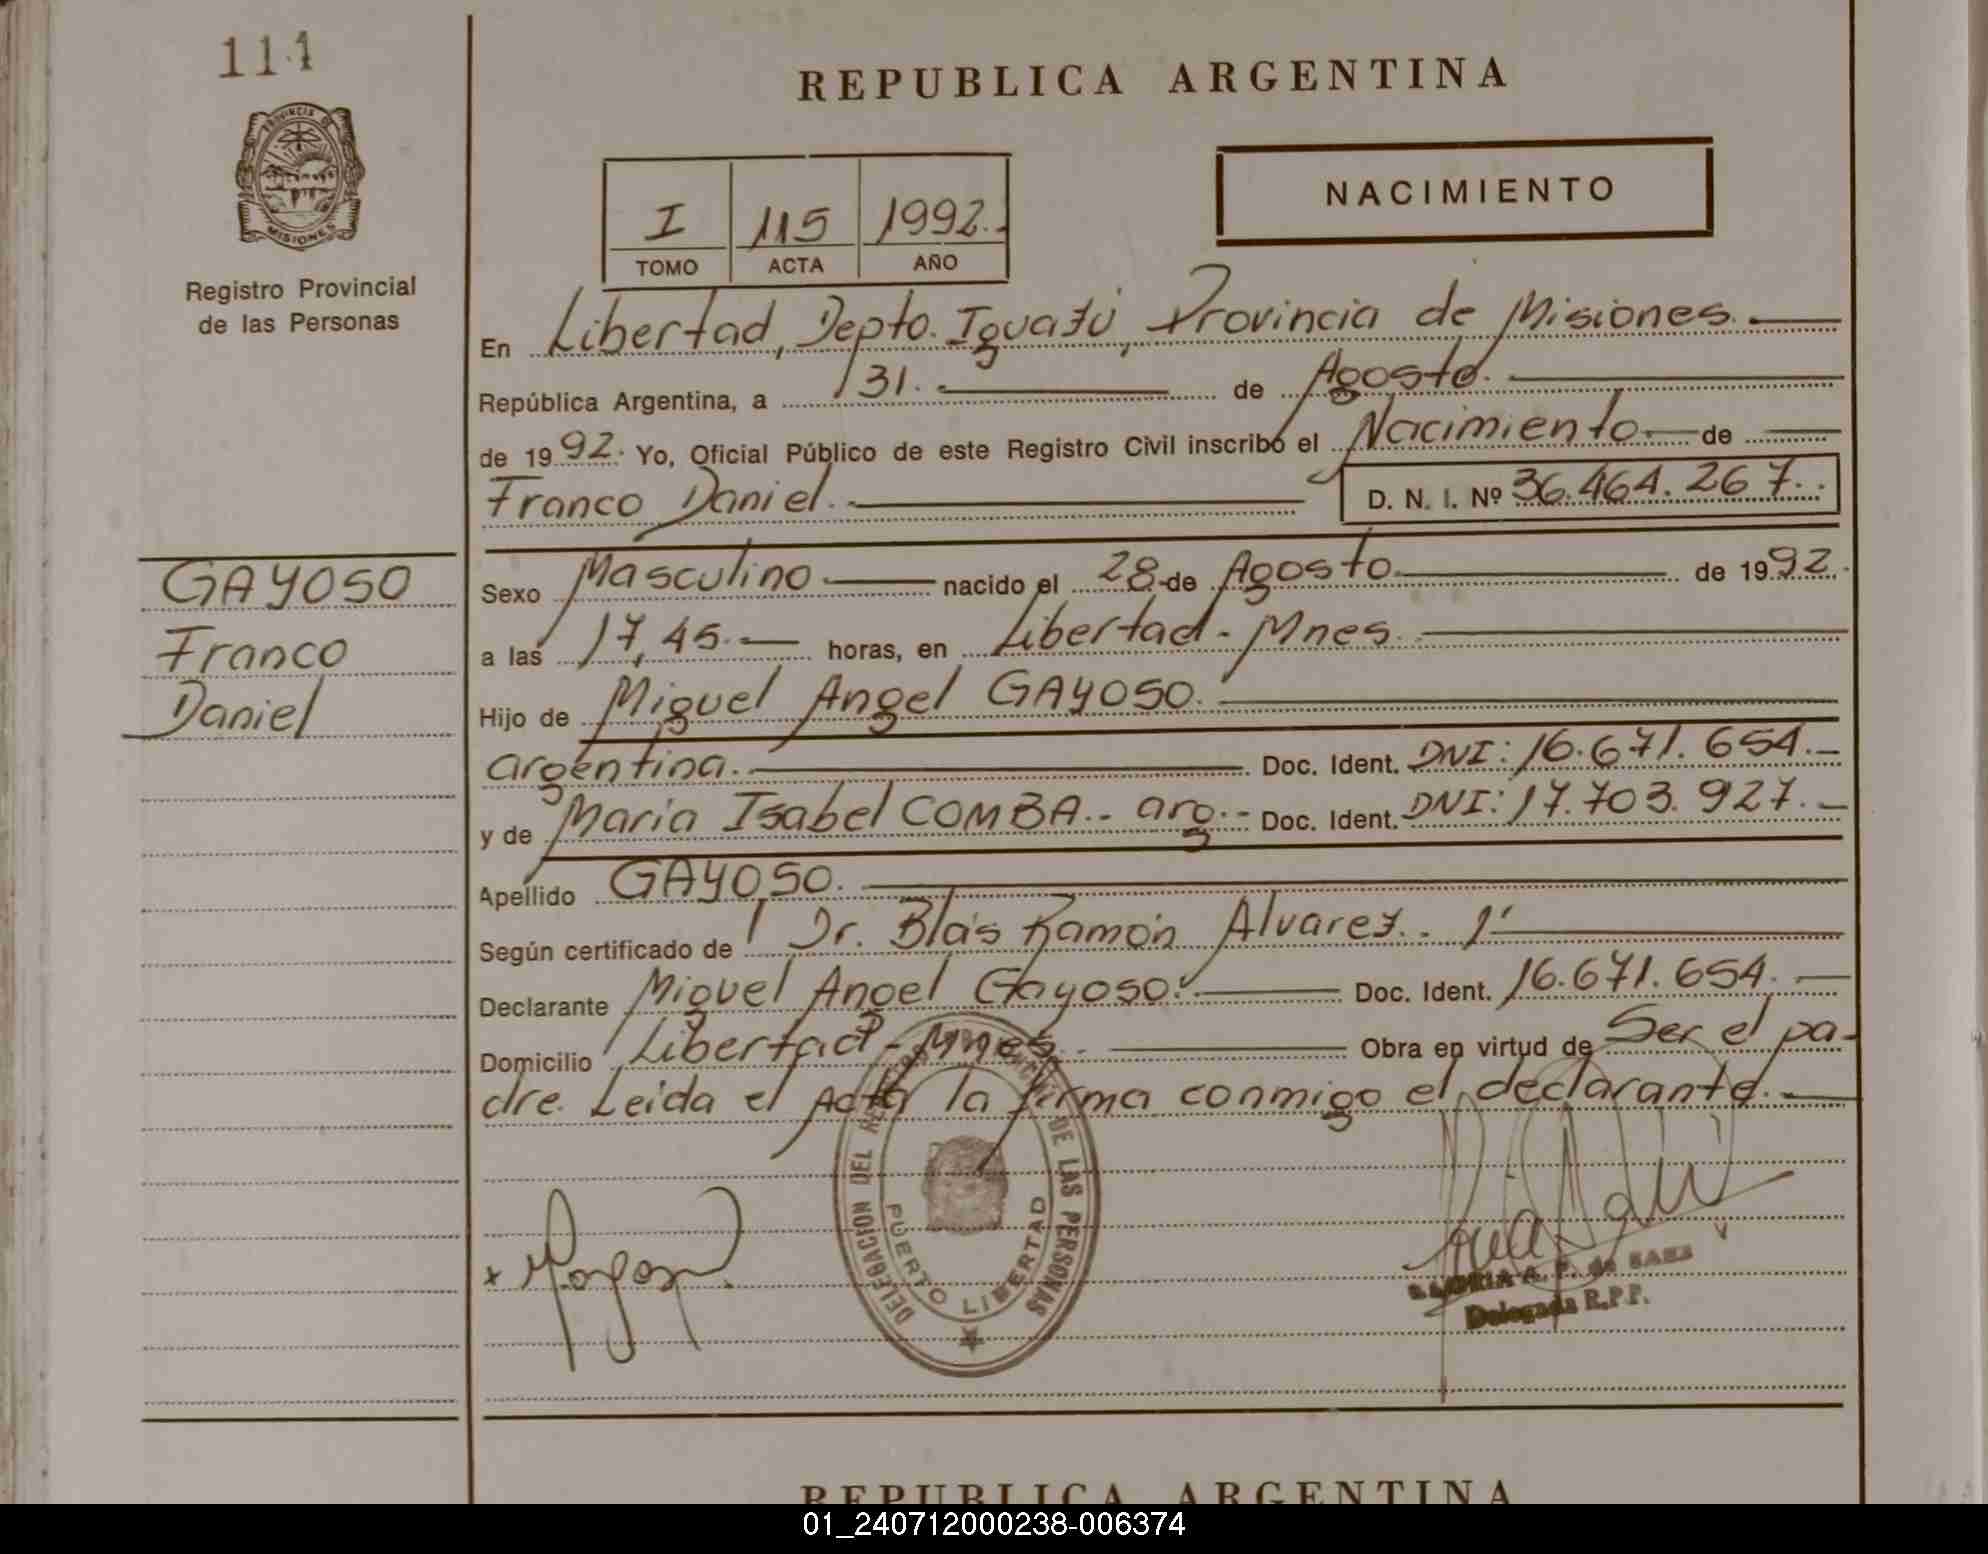 111
PROVINCIA DE
MISIONES
Registro Provincial
de las Personas
GAYOSO
Franco
Daniel
REPUBLICA ARGENTINA
I 115 1992.-
TOMO ACTA AÑO
NACIMIENTO
En Libertad, Depto. Iguazú, Provincia de Misiones.
República Argentina, a 31. de Agosto.
de 1992. Yo, Oficial Público de este Registro Civil inscribo el Nacimiento de
Franco Daniel. D. N. I. Nº 36.464.267..
Sexo Masculino nacido el 28 de Agosto de 1992.
a las 17,45.- horas, en Libertad - Mnes.
Hijo de Miguel Angel GAYOSO.
argentina. Doc. Ident. DNI: 16.671.654.-
y de Maria Isabel COMBA.- arg.- Doc. Ident. DNI: 17.703.927.-
Apellido GAYOSO.
Según certificado de Dr. Blás Ramón Alvarez..
Declarante Miguel Angel Gayoso. Doc. Ident. 16.671.654.
Domicilio Libertad - Mnes. Obra en virtud de Ser el pa-
dre. Leida el Acta la firma conmigo el declarante.
DELEGACION DEL DE LAS PERSONAS
PUERTO LIBERTAD
A. P. de SAEZ
Delegada R.P.P.
REPUBLICA ARGENTINA
01_240712000238-006374